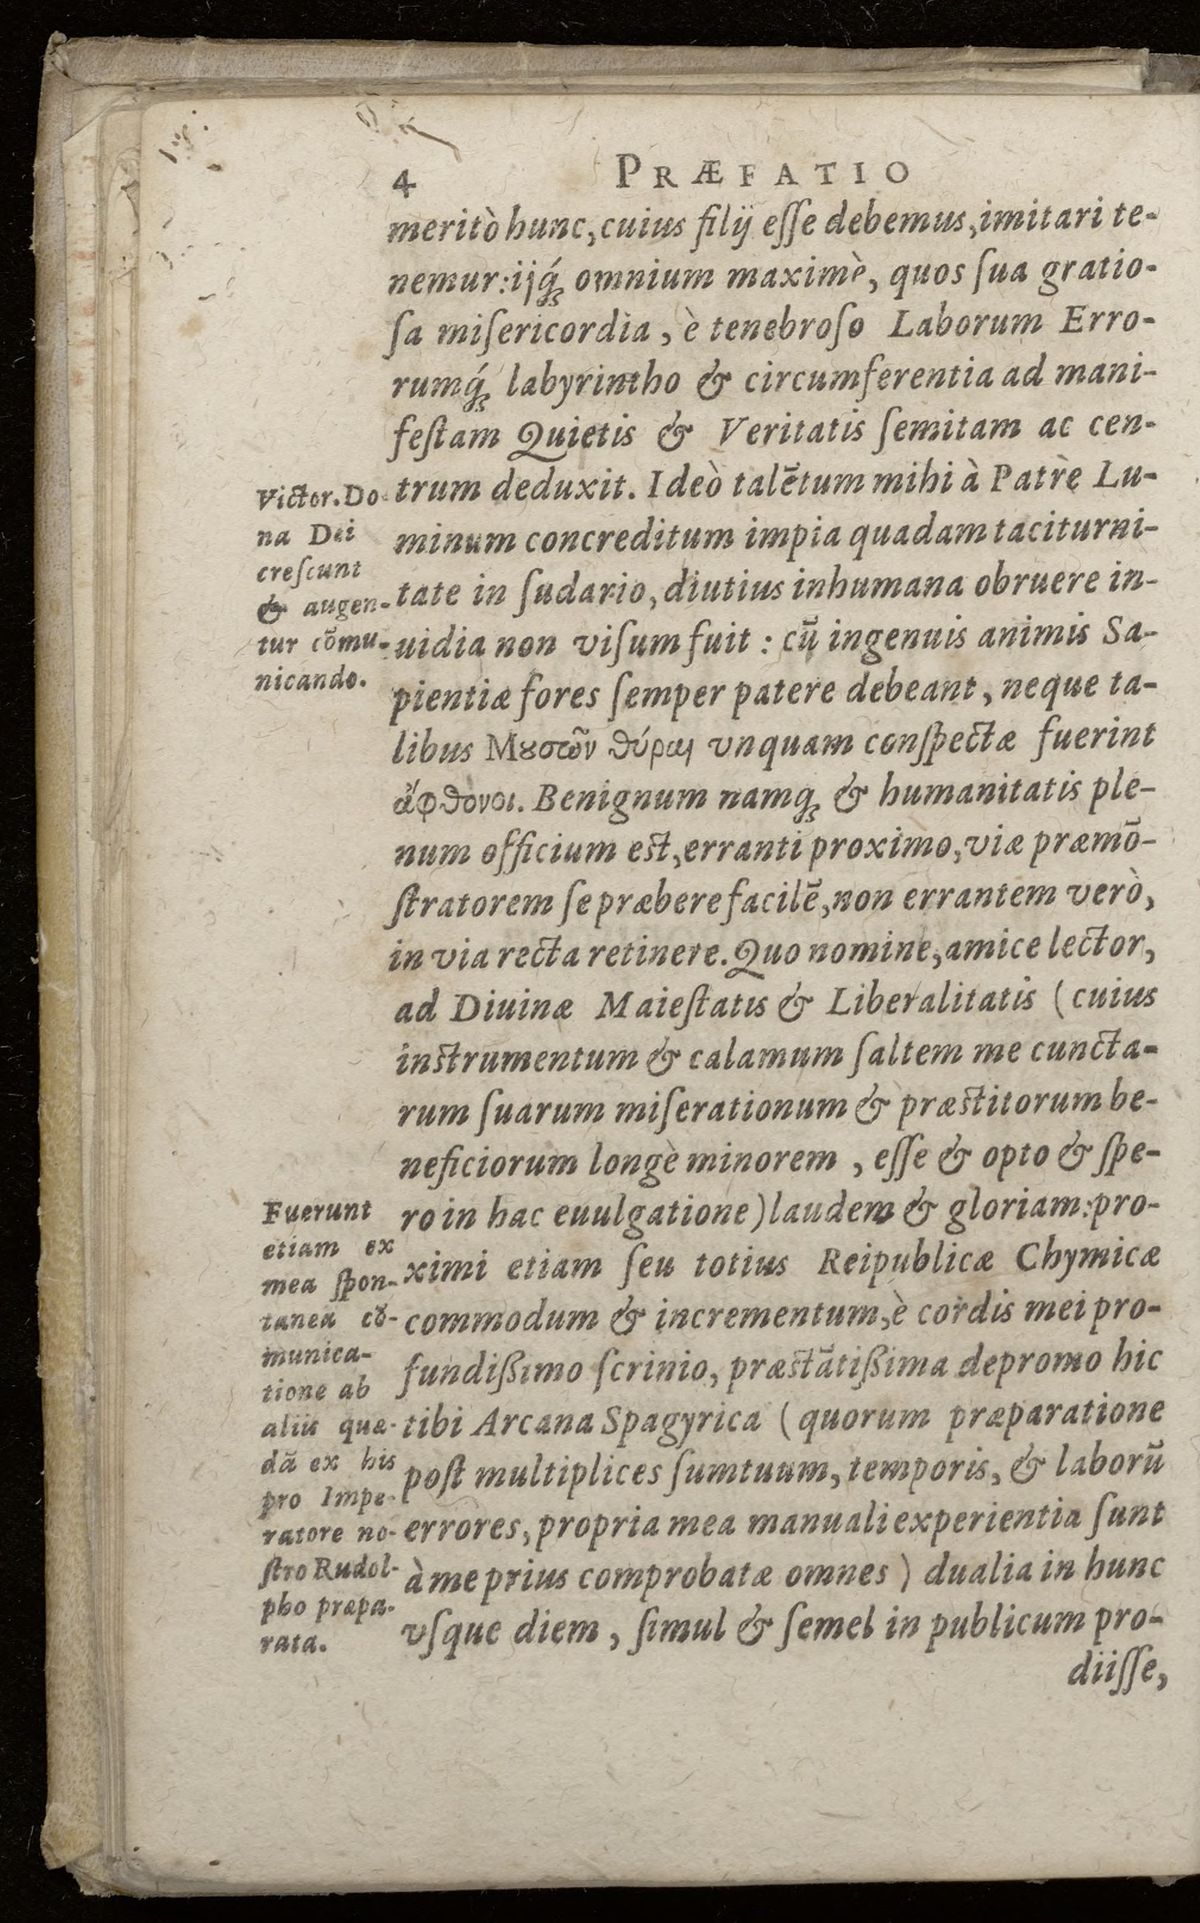 4 PRÆFATIO
meritò hunc, cuius filij eſſe debemus, imitari te-
nemur: ijq́ꝫ omnium maximè, quos ſua gratio-
ſa miſericordia, è tenebroſo Laborum Erro-
rumq́ꝫ labyrintho & circumferentia ad mani-
feſtam Quietis & Veritatis ſemitam ac cen-
trum deduxit. Ideò talẽtum mihi à Patre Lu-
minum concreditum impia quadam taciturni-
tate in ſudario, diutius inhumana obruere in-
uidia non viſum fuit: cũ ingenuis animis Sa-
pientiæ fores ſemper patere debeant, neque ta-
libus Μȣσῶν θύραι vnquam conſpectæ fuerint
ἄφθονοι. Benignum namqꝫ & humanitatis ple-
num officium est, erranti proximo, viæ præmõ-
ſtratorem ſe præbere facilẽ, non errantem verò,
in via recta retinere. Quo nomine, amice lector,
ad Diuinæ Maieſtatis & Liberalitatis (cuius
instrumentum & calamum ſaltem me cuncta-
rum ſuarum miſerationum & præstitorum be-
neficiorum longè minorem, eſſe & opto & ſpe-
ro in hac euulgatione) laudem & gloriam: pro-
ximi etiam ſeu totius Reipublicæ Chymicæ
commodum & incrementum, è cordis mei pro-
fundißimo ſcrinio, præstãtißima depromo hic
tibi Arcana Spagyrica (quorum præparatione
poſt multiplices ſumtuum, temporis, & laborũ
errores, propria mea manuali experientia ſunt
à me prius comprobatæ omnes) dualia in hunc
vſque diem, ſimul & ſemel in publicum pro-
diiſſe,
Victor. Do
na Dei
creſcunt
& augen-
tur cõmu-
nicando.
Fuerunt
etiam ex
mea ſpon-
tanea cõ-
munica-
tione ab
aliis quæ-
dã ex his
pro Impe-
ratore no-
ſtro Rudol-
pho præpa-
rata.